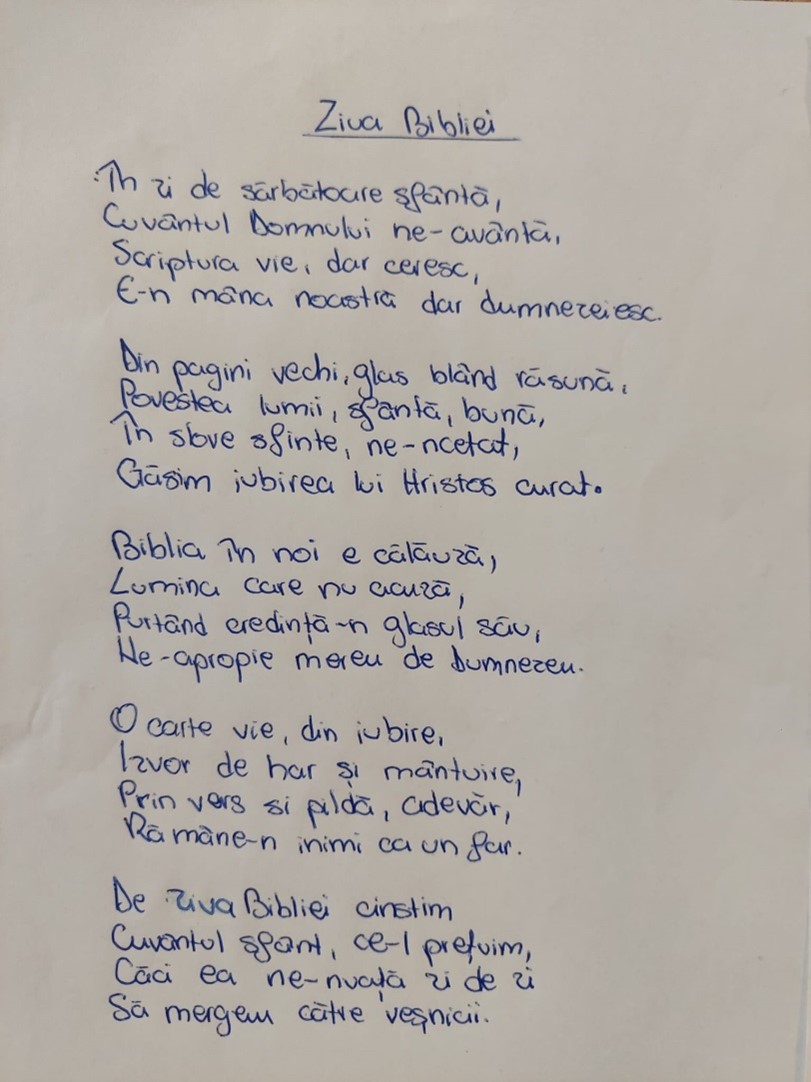 Ziua Bibliei
În zi de sărbătoare sfântă,
Cuvântul Domnului ne-avântă,
Scriptura vie, dar ceresc,
E-n mâna noastră dar dumnezeiesc.
Din pagini vechi, glas blând răsună,
Povestea lumii, sfântă, bună,
În slove sfinte, ne-ncetat,
Găsim iubirea lui Hristos curat.
Biblia în noi e călăuză,
Lumina care nu acuză,
Purtând credință-n glasul său,
Ne-apropie mereu de Dumnezeu.
O carte vie, din iubire,
Izvor de har și mântuire,
Prin vers si pildă, adevăr,
Rămâne-n inimi ca un far.
De Ziua Bibliei cinstim
Cuvantul sfant, ce-l prețuim,
Căci ea ne-nvață zi de zi
Să mergem către veșnicii.